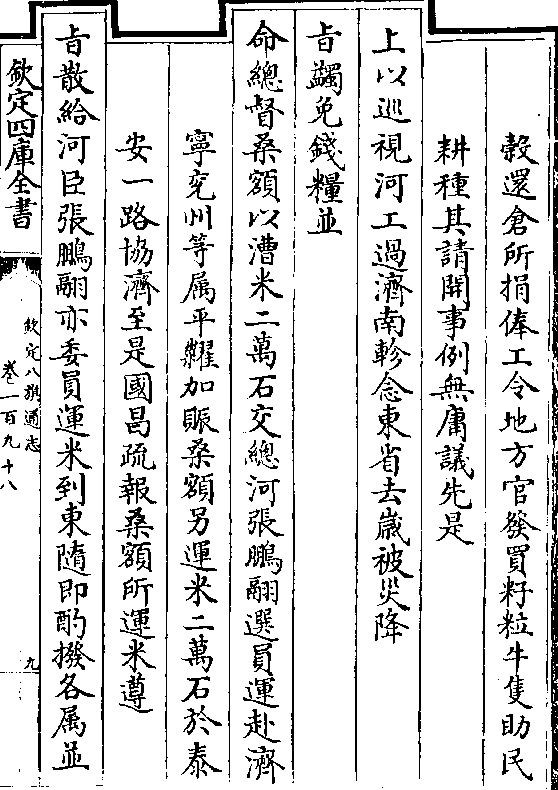 榖還倉所捐俸工令地方官發買籽粒牛隻助民
耕種其請開事例無庸議先是
上以巡視河工過濟南軫念東省去歲被災降
旨蠲免錢糧並
命總督桑額以漕米二萬石交總河張鵬翮選員運赴濟
寧兖州等屬平糶加賑桑額另運米二萬石於泰
安一路協濟至是國昌疏報桑額所運米遵
旨散給河臣張鵬翮亦委員運米到東隨即酌撥各属並
欽定四庫全書
欽定八旗通志
卷一百九十八
九